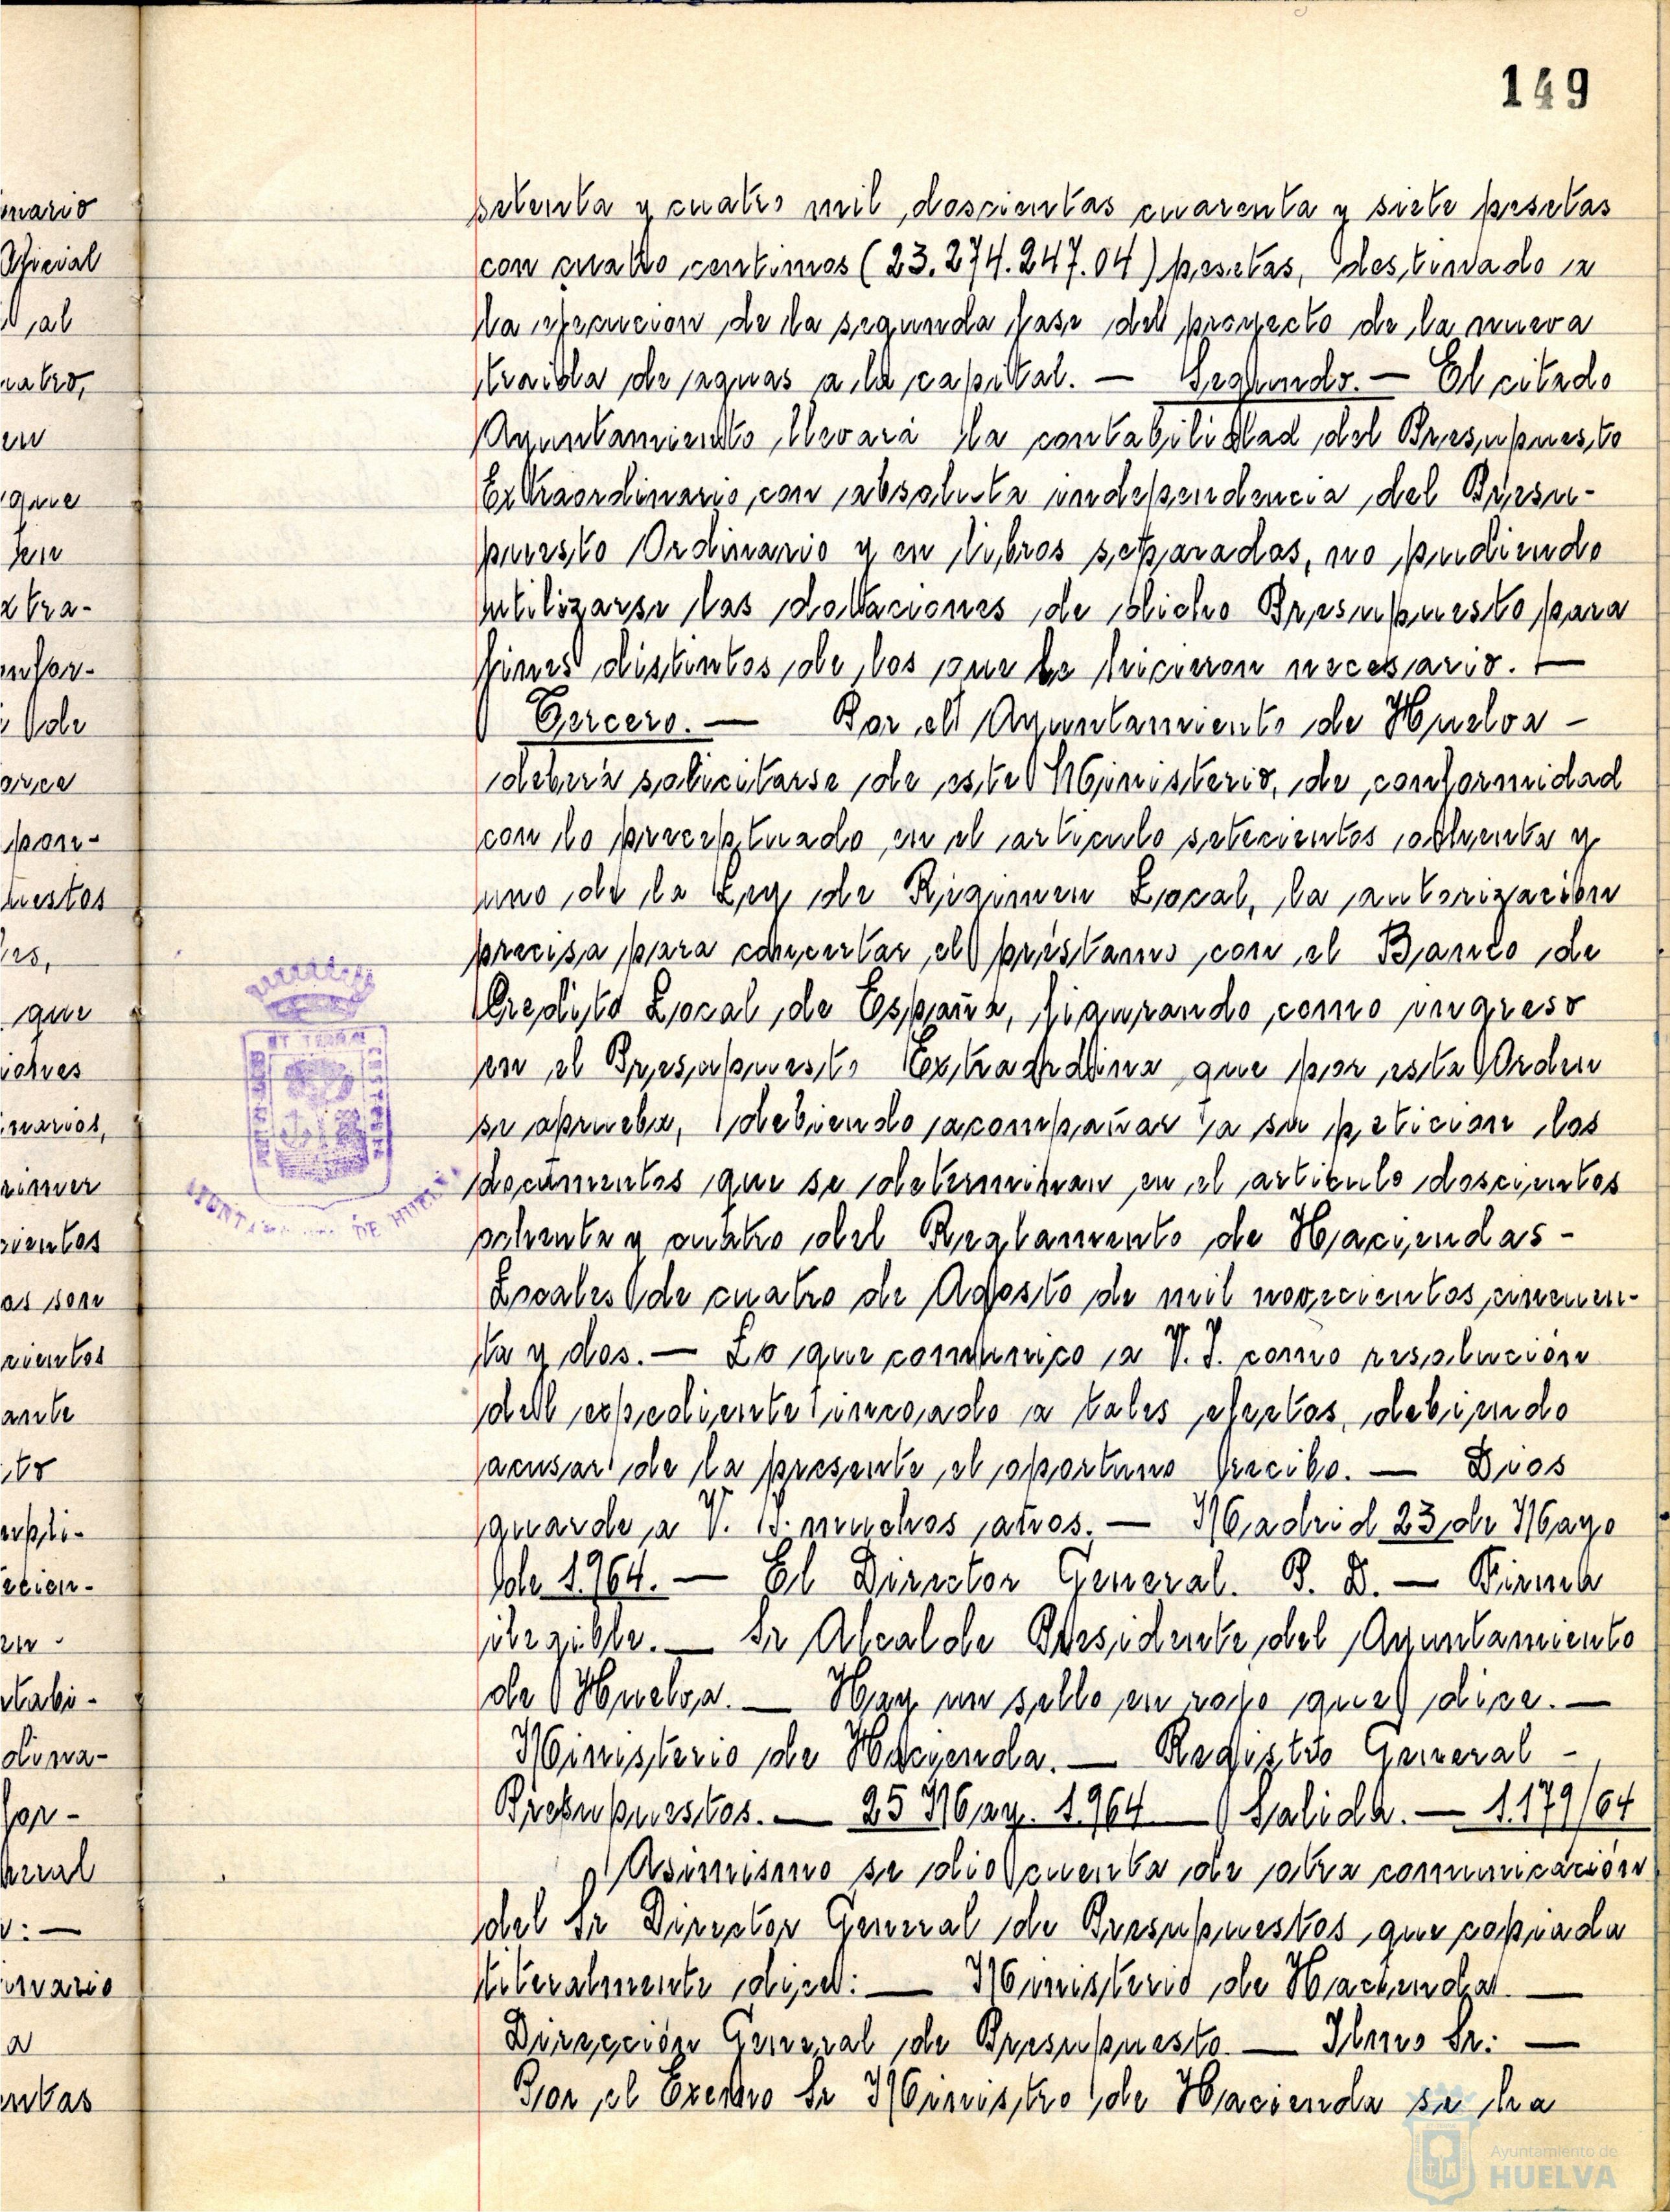 149
setenta y cuatro mil doscientas cuarenta y siete pesetas
con cuatro centimos (23.274.247.04) pesetas, destinado a
la ejecucion de la segunda fase del proyecto de la nueva
traida de aguas a la capital. — Segundo. — El citado
Ayuntamiento llevará la contabilidad del Presupuesto
Extraordinario con absoluta independencia del Presu-
puesto Ordinario y en libros separados, no pudiendo
utilizarse las dotaciones de dicho Presupuesto para
fines distintos de los que le hicieron necesario. —
Tercero. — Por el Ayuntamiento de Huelva -
deberá solicitarse de este Ministerio, de conformidad
con lo preceptuado en el articulo setecientos ochenta y
uno de la Ley de Regimen Local, la autorización
precisa para concertar el préstamo con el Banco de
Credito Local de España, figurando como ingreso
en el Presupuesto Extraordina que por esta Orden
se aprueba, debiendo acompañar a su peticion los
documentos que se determinan en el articulo doscientos
ochenta y cuatro del Reglamento de Haciendas -
Locales de cuatro de Agosto de mil novecientos cincuen-
ta y dos. — Lo que comunico a V. I. como resolución
del expediente incoado a tales efectos, debiendo
acusar de la presente el oportuno recibo. — Dios
guarde a V. I. muchos años. — Madrid 23 de Mayo
de 1.964. — El Director General. P. D. — Firma
ilegible. — Sr Alcalde Presidente del Ayuntamiento
de Huelva. — Hay un sello en rojo que dice. —
Ministerio de Hacienda. — Registro General -
Presupuestos. — 25 May. 1.964 — Salida. — 1.179/64
Asimismo se dio cuenta de otra comunicación
del Sr Director General de Presupuestos, que copiada
literalmente dice: — Ministerio de Hacienda —
Dirección General de Presupuesto — Ilmo Sr: —
Por el Excmo Sr Ministro de Hacienda se ha
nario
Oficial
al
uatro,
en
que
tra-
de
puestos
que
rimer
cientos
ante
to
dina-
for-
a
entas
ET TERRAE
DE HUELVA
Ayuntamiento de
HUELVA